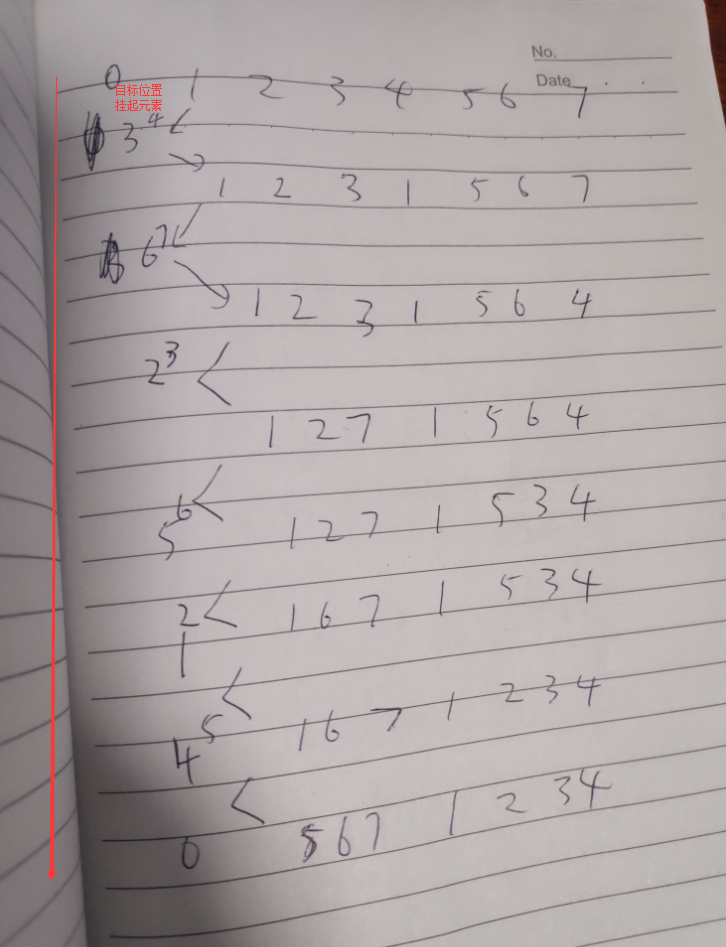 No.
0 1 2 3 4 5 6 7 Date
目标位置
挂起元素
3 4
1 2 3 1 5 6 7
6 7
1 2 3 1 5 6 4
2 3
1 2 7 1 5 6 4
6
5 1 2 7 1 5 3 4
2 1 6 7 1 5 3 4
1
5 1 6 7 1 2 3 4
4
0 5 6 7 1 2 3 4